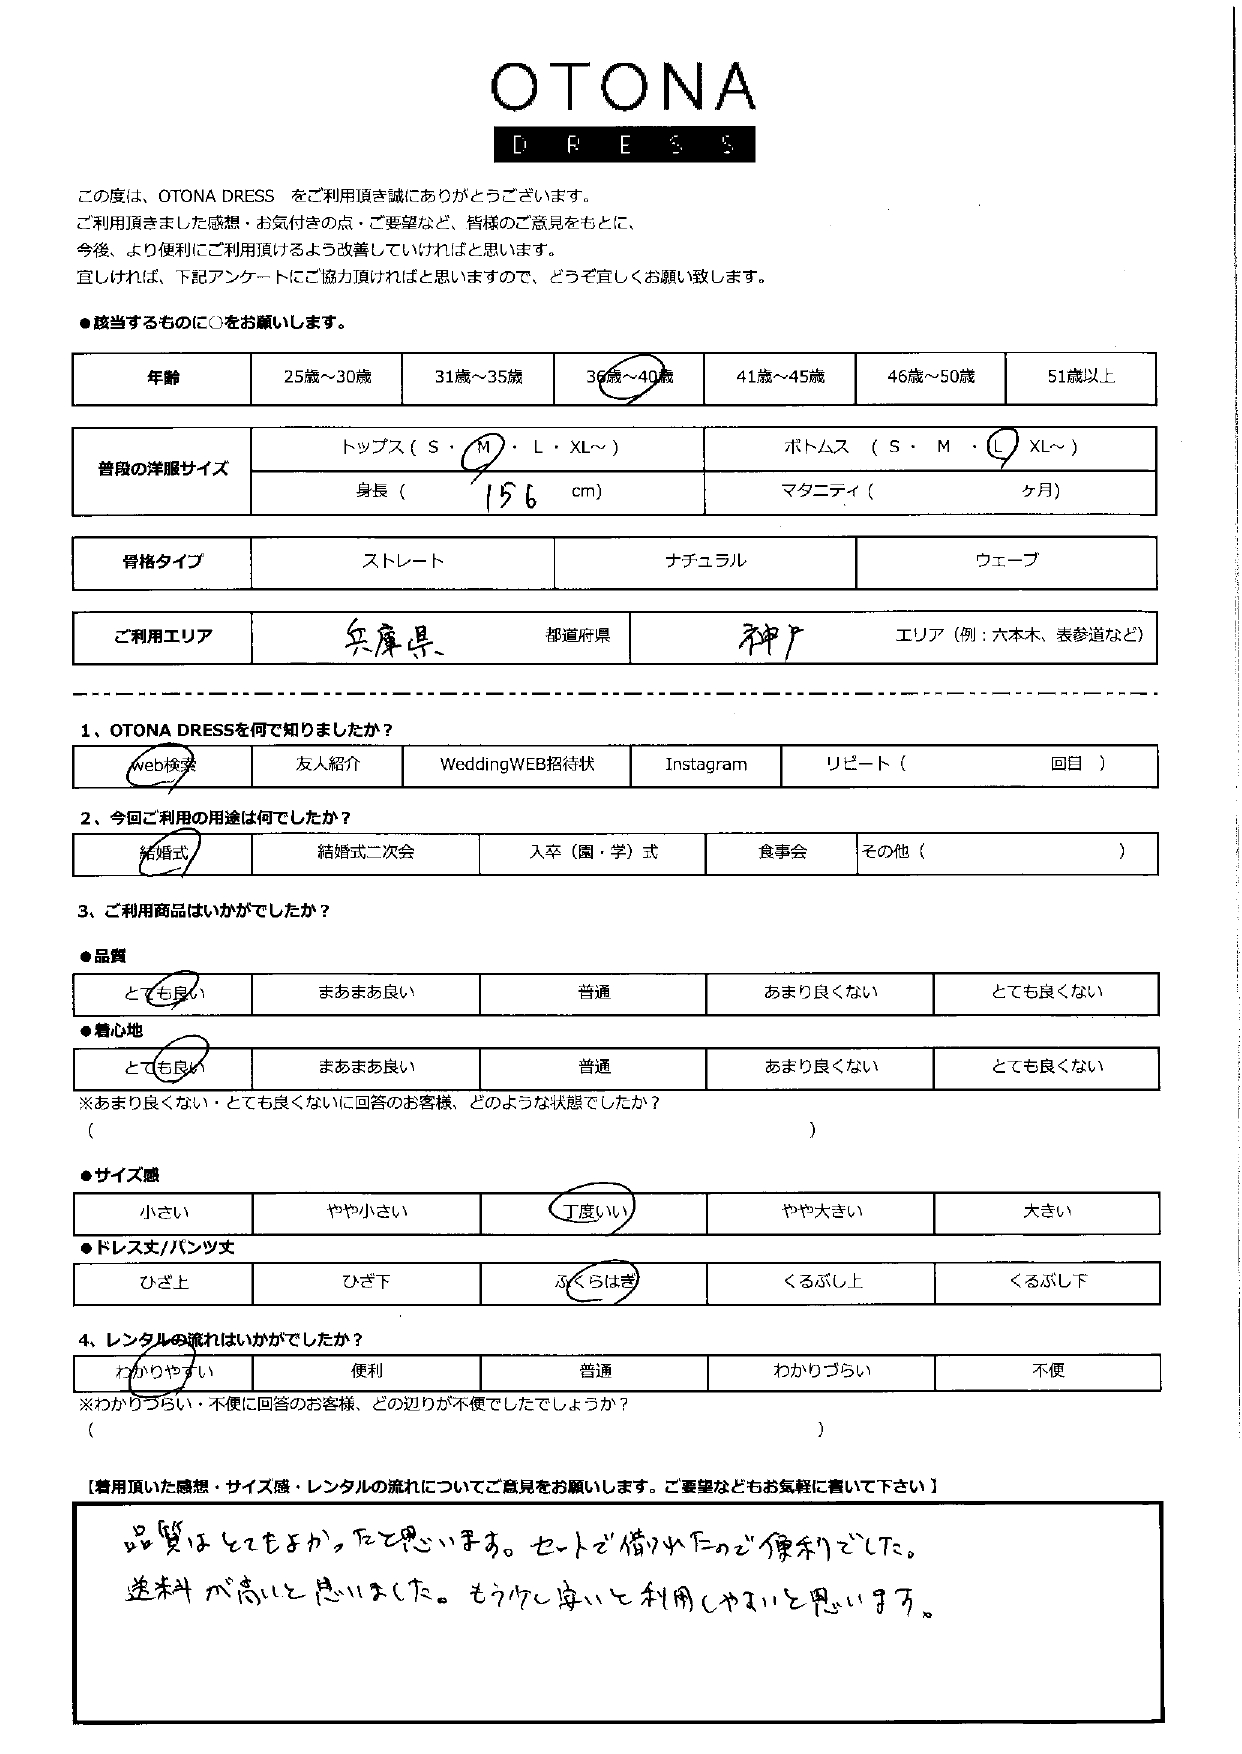 OTONA
DRESS
この度は、OTONA DRESS をご利用頂き誠にありがとうございます。
ご利用頂きました感想・お気付きの点・ご要望など、皆様のご意見をもとに、
今後、より便利にご利用頂けるよう改善していければと思います。
宜しければ、下記アンケートにご協力頂ければと思いますので、どうぞ宜しくお願い致します。
●該当するものに○をお願いします。
年齢 25歳～30歳 31歳～35歳 36歳～40歳 41歳～45歳 46歳～50歳 51歳以上
普段の洋服サイズ
トップス ( S ・ M ・ L ・ XL～ ) ボトムス ( S ・ M ・ L XL～ )
身長 ( 156 cm) マタニティ ( ケ月)
骨格タイプ ストレート ナチュラル ウェーブ
ご利用エリア 兵庫県 都道府県 神戸 エリア（例：六本木、表参道など）
1、OTONA DRESSを何で知りましたか？
web検索 友人紹介 WeddingWEB招待状 Instagram リピート ( 回目 )
2、今回ご利用の用途は何でしたか？
結婚式 結婚式二次会 入卒（園・学）式 食事会 その他 ( )
3、ご利用商品はいかがでしたか？
●品質
とても良い まあまあ良い 普通 あまり良くない とても良くない
●着心地
とても良い まあまあ良い 普通 あまり良くない とても良くない
※あまり良くない・とても良くないに回答のお客様、どのような状態でしたか？
( )
●サイズ感
小さい やや小さい 丁度いい やや大きい 大きい
●ドレス丈/パンツ丈
ひざ上 ひざ下 ふくらはぎ くるぶし上 くるぶし下
4、レンタルの流れはいかがでしたか？
わかりやすい 便利 普通 わかりづらい 不便
※わかりづらい・不便に回答のお客様、どの辺りが不便でしたでしょうか？
( )
【着用頂いた感想・サイズ感・レンタルの流れについてご意見をお願いします。ご要望などもお気軽に書いて下さい】
品質はとてもよかったと思います。セットで借りれたので便利でした。
送料が高いと思いました。もう少し安いと利用しやすいと思います。